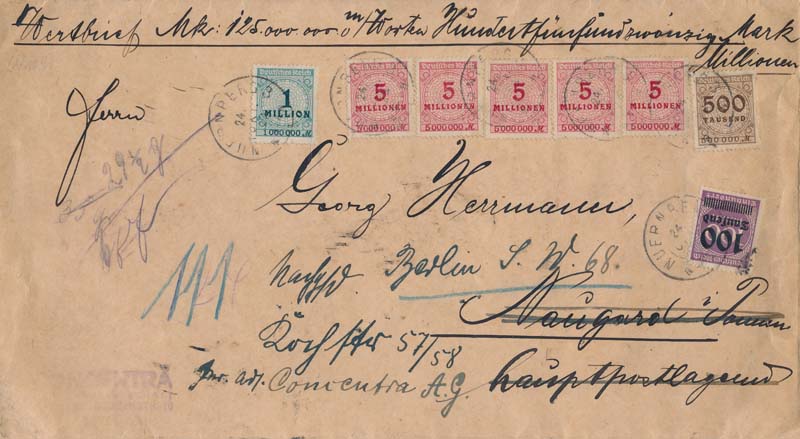 Wertbrief Mk: 125.000.000 m/Worten Hundertfünfundzwanzig Mark
Millionen
Herrn
Deutsches Reich
1
MILLION
1000000 M
Deutsches Reich
5
MILLIONEN
5000000 M
Deutsches Reich
5
MILLIONEN
5000000 M
Deutsches Reich
5
MILLIONEN
5000000 M
Deutsches Reich
5
MILLIONEN
5000000 M
Deutsches Reich
5
MILLIONEN
5000000 M
Deutsches Reich
500
TAUSEND
500000 M
NUERNBERG
24
Georg Herrmann,
100
Tausend
Deutsches Reich
NUERNBERG
24
111
Nachgsd. Berlin S.W. 68.
Naugard i. Pommern
Kochstr 57/58
per adr. Concentra A.G. hauptpostlagernd